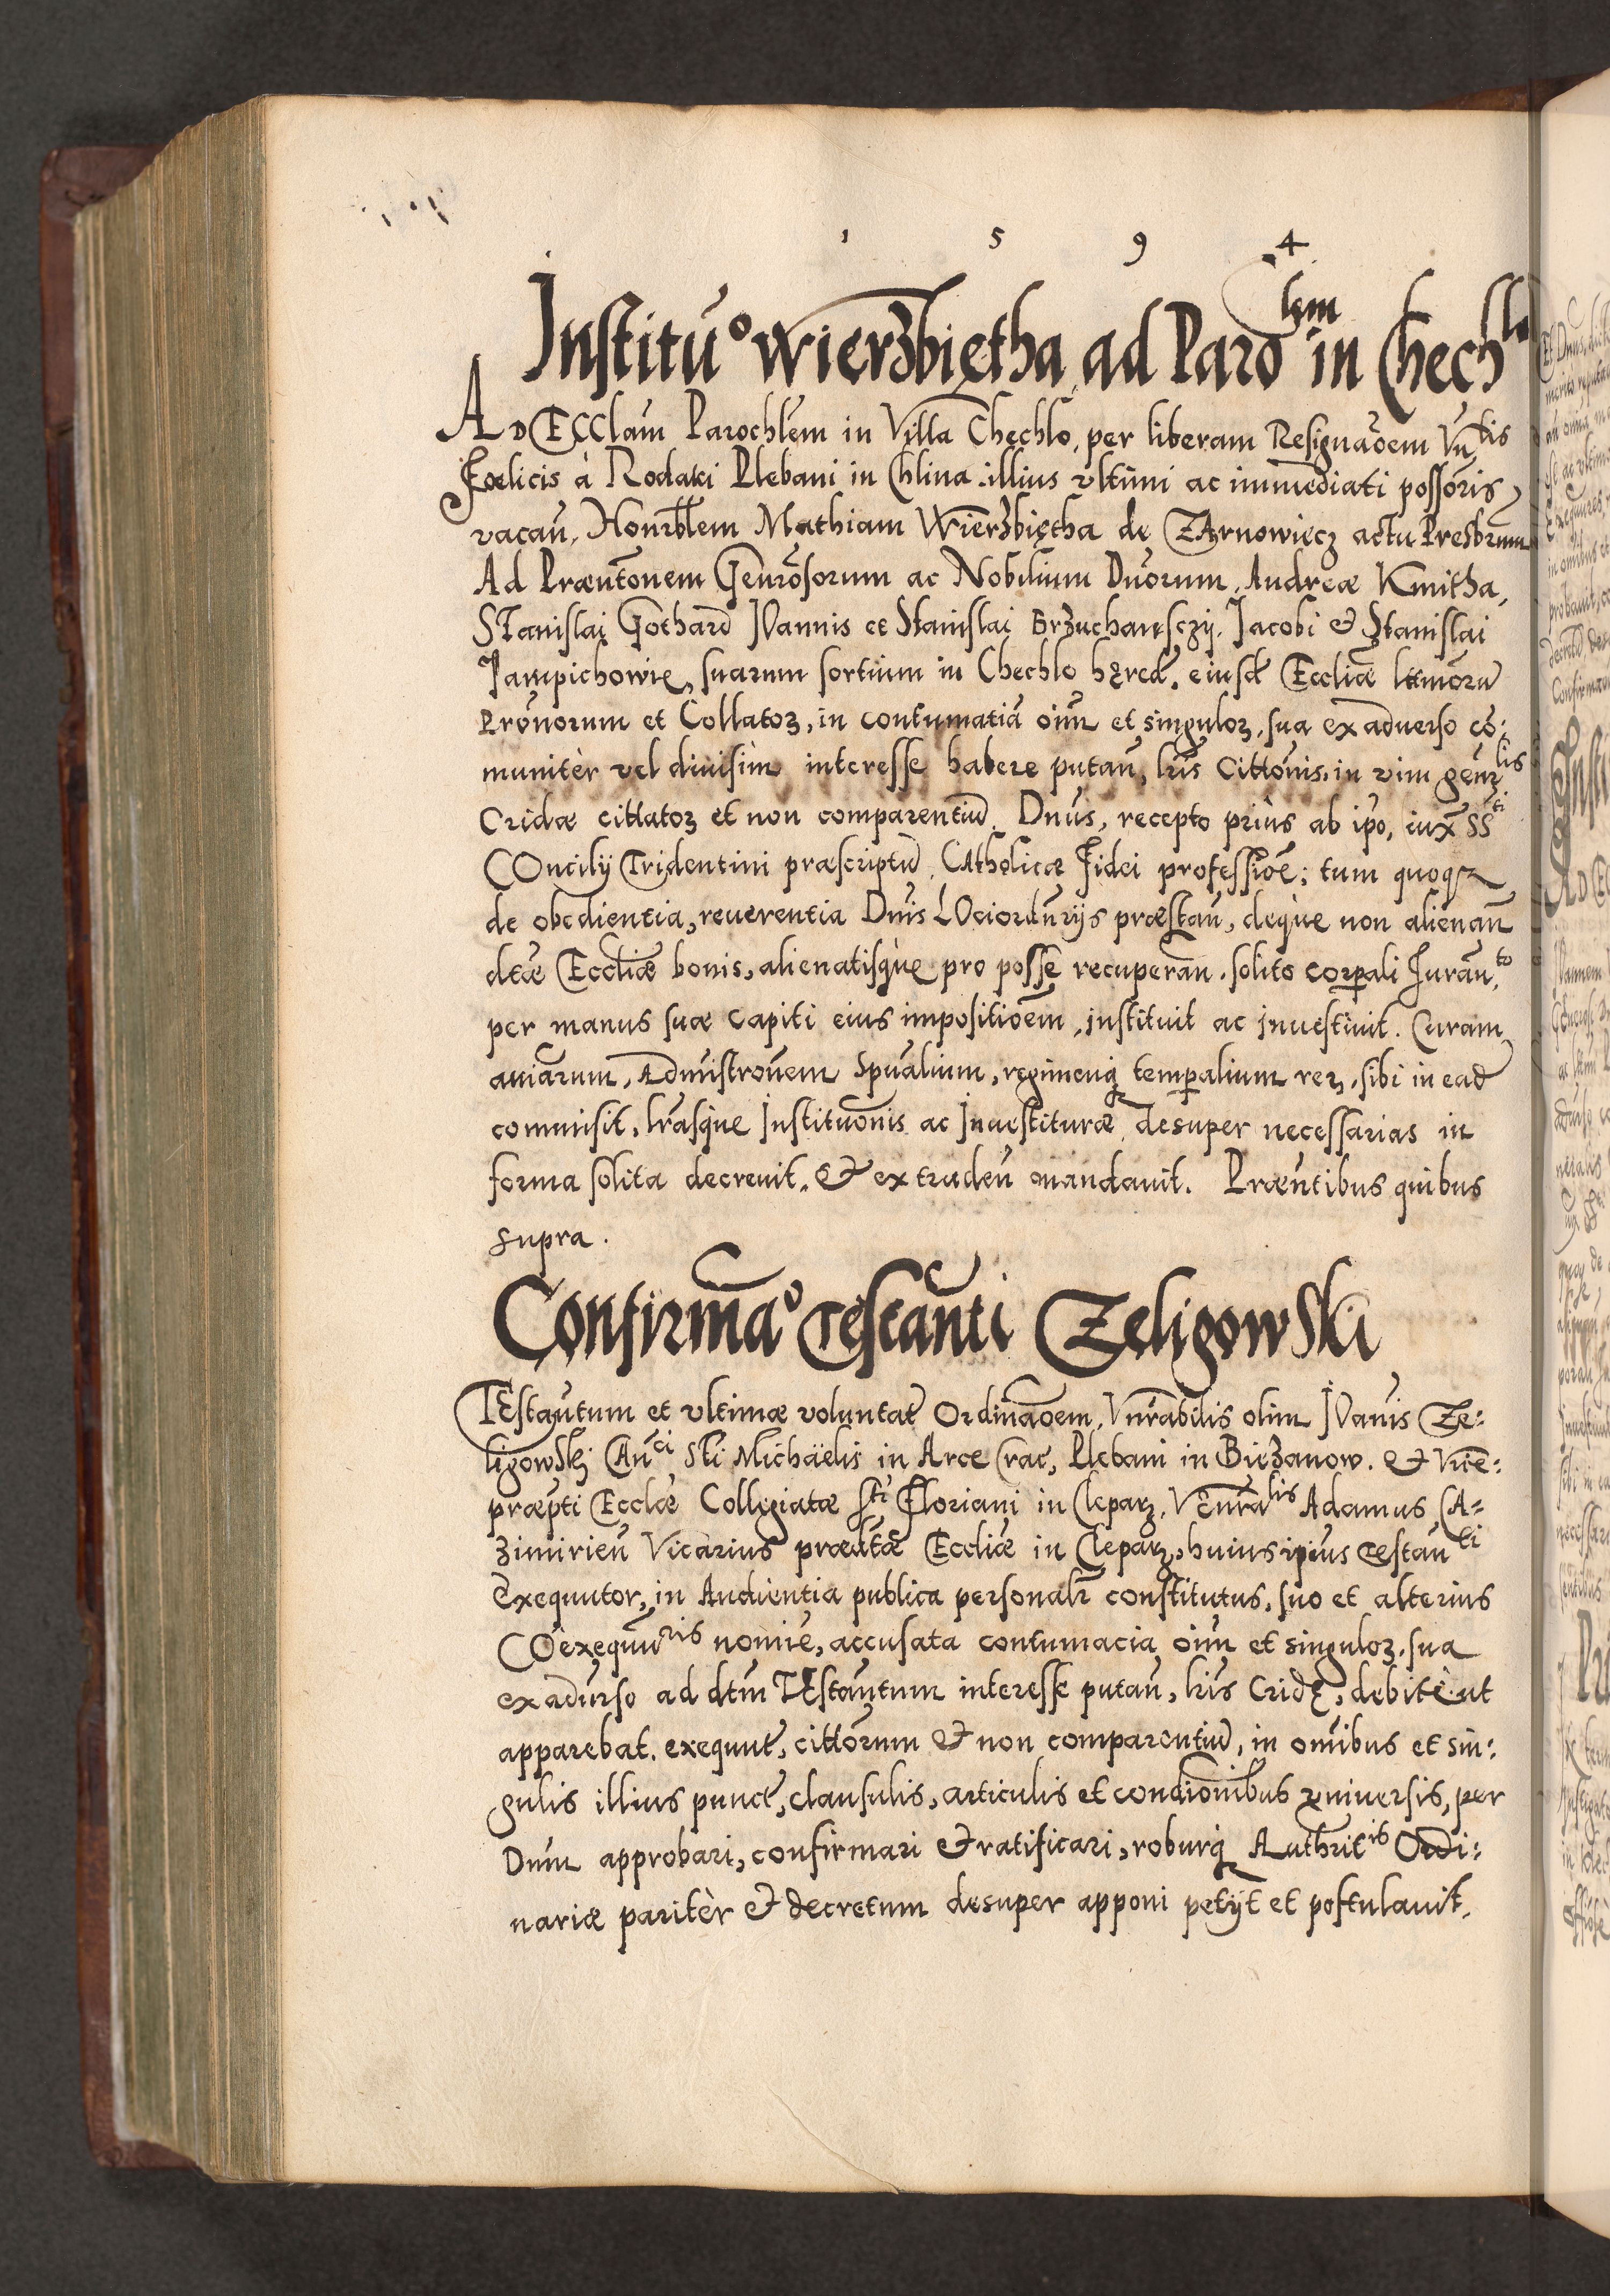 1 5 9 4
Institu° Wierzbiętha ad Paro lem in Chechlo
AD ECClam̃ Parochlem in Villa Chechlo, per liberam Resignaõem Vn̄ bis
Fœlicis à Rodaki Plebani in Chlina illius vltimi ac immediati posſoris,
vacan̄, Honrb̃lem Mathiam Wierzbiętha de ZArnowiecz actu Presbr̃um
Ad Præn̄tõnem Gen̄rosorum ac Nobilium Dn̄orum, Andreæ Kmitha,
STanislai Gothard IOannis et Stanislai Brzuchanſczij, Jacobi & Stanislai
Jampichowie, suarum sortium in Chechlo hęred̃, eiusd̃ Eccliæ l̃timorũ
Pron̄orum et Collatoꝝ, in contumatiã oim̃ et singuloꝝ, sua ex aduerso cõ:
munitèr vel diuisim interesse habere putan̄, lr̃is Citt̃onis, in vim gen̄r lis
Cridæ cittatoꝝ et non comparentiũ. Dn̄us, recepto priùs ab ip̃o, iux̃ SS ti
COncilij Tridentini præscriptũ, CAtholicæ Fidei professiõe; tum quoqꝫ
de obedientia, reuerentia Dn̄is LOciordn̄rijs præstan̄, deq̀ue non alienan̄
dc̃æ Eccliæ bonis, alienatisq̀ue pro posse recuperan̄. solito corꝑali Juran̄ to
per manus suæ capiti eius impositiõem, instituit ac inuestiuit. Curam
aniãrum, ADmistr̃onem Spũalium, regimenqꝫ temꝑalium reꝝ, sibi in ead̃
commisit, lr̃asq̀ue Institutiõnis ac Inuestituræ desuper necessarias in
forma solita decreuit, & extraden̄ mandauit. Præn̄tibus quibus
supra.
Confirma° Testam̃ti Zeligowski
TEstam̃tum et vltimæ voluntat̃ Ordinaõem, Vn̄rabilis olim IOan̄is Ze:
ligowskj CAn̄ ci Sti Michäelis in Arce Crac̃, Plebani in Biezanow. & Vice:
præpti Eccl̃æ Collegiatæ Sti Floriani in Cleparz, Ven̄ra lis Adamus CA=
zimirien̄ Vicarius præd̃tæ Eccliæ in Cleparz, huius ip̃ius Testan̄ ti
Exequutor, in Audientia publica personalr̃ constitutus, suo et alterius
COexequũ ris nomie, accusata contumacia oim̃ et singuloꝝ, sua
exadũrso ad dc̃tm TEstam̃tum interesse putan̄, lr̃is Cridę, debitè ut
apparebat, exequut̃, citt̃orum & non comparentiũ, in omĩbus et sin:
gulis illius punct̃, clausulis, articulis et condiõnibus vniuersis, per
Dnm̃ approbari, confirmari & ratificari, roburqꝫ Authrit̃ is Ordi:
nariæ paritèr & decretum desuper apponi petijt et postulauit.